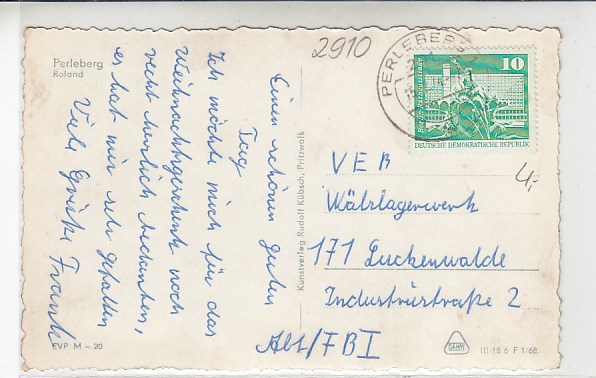 Perleberg
Roland
2910
Einen schönen guten
Tag
Ich möchte mich für das
Weihnachtsgeschenk noch
recht herzlich bedanken,
es hat mir sehr gefallen
Viele Grüße Frank
EVP M -.20
Kunstverlag Rudolf Kübsch, Pritzwalk
PERLEBERG
10
DEUTSCHE DEMOKRATISCHE REPUBLIK
4,-
VEB
Wälzlagerwerk
171 Luckenwalde
Industriestraße 2
Abt/FBI
III 18 6 F 1/68